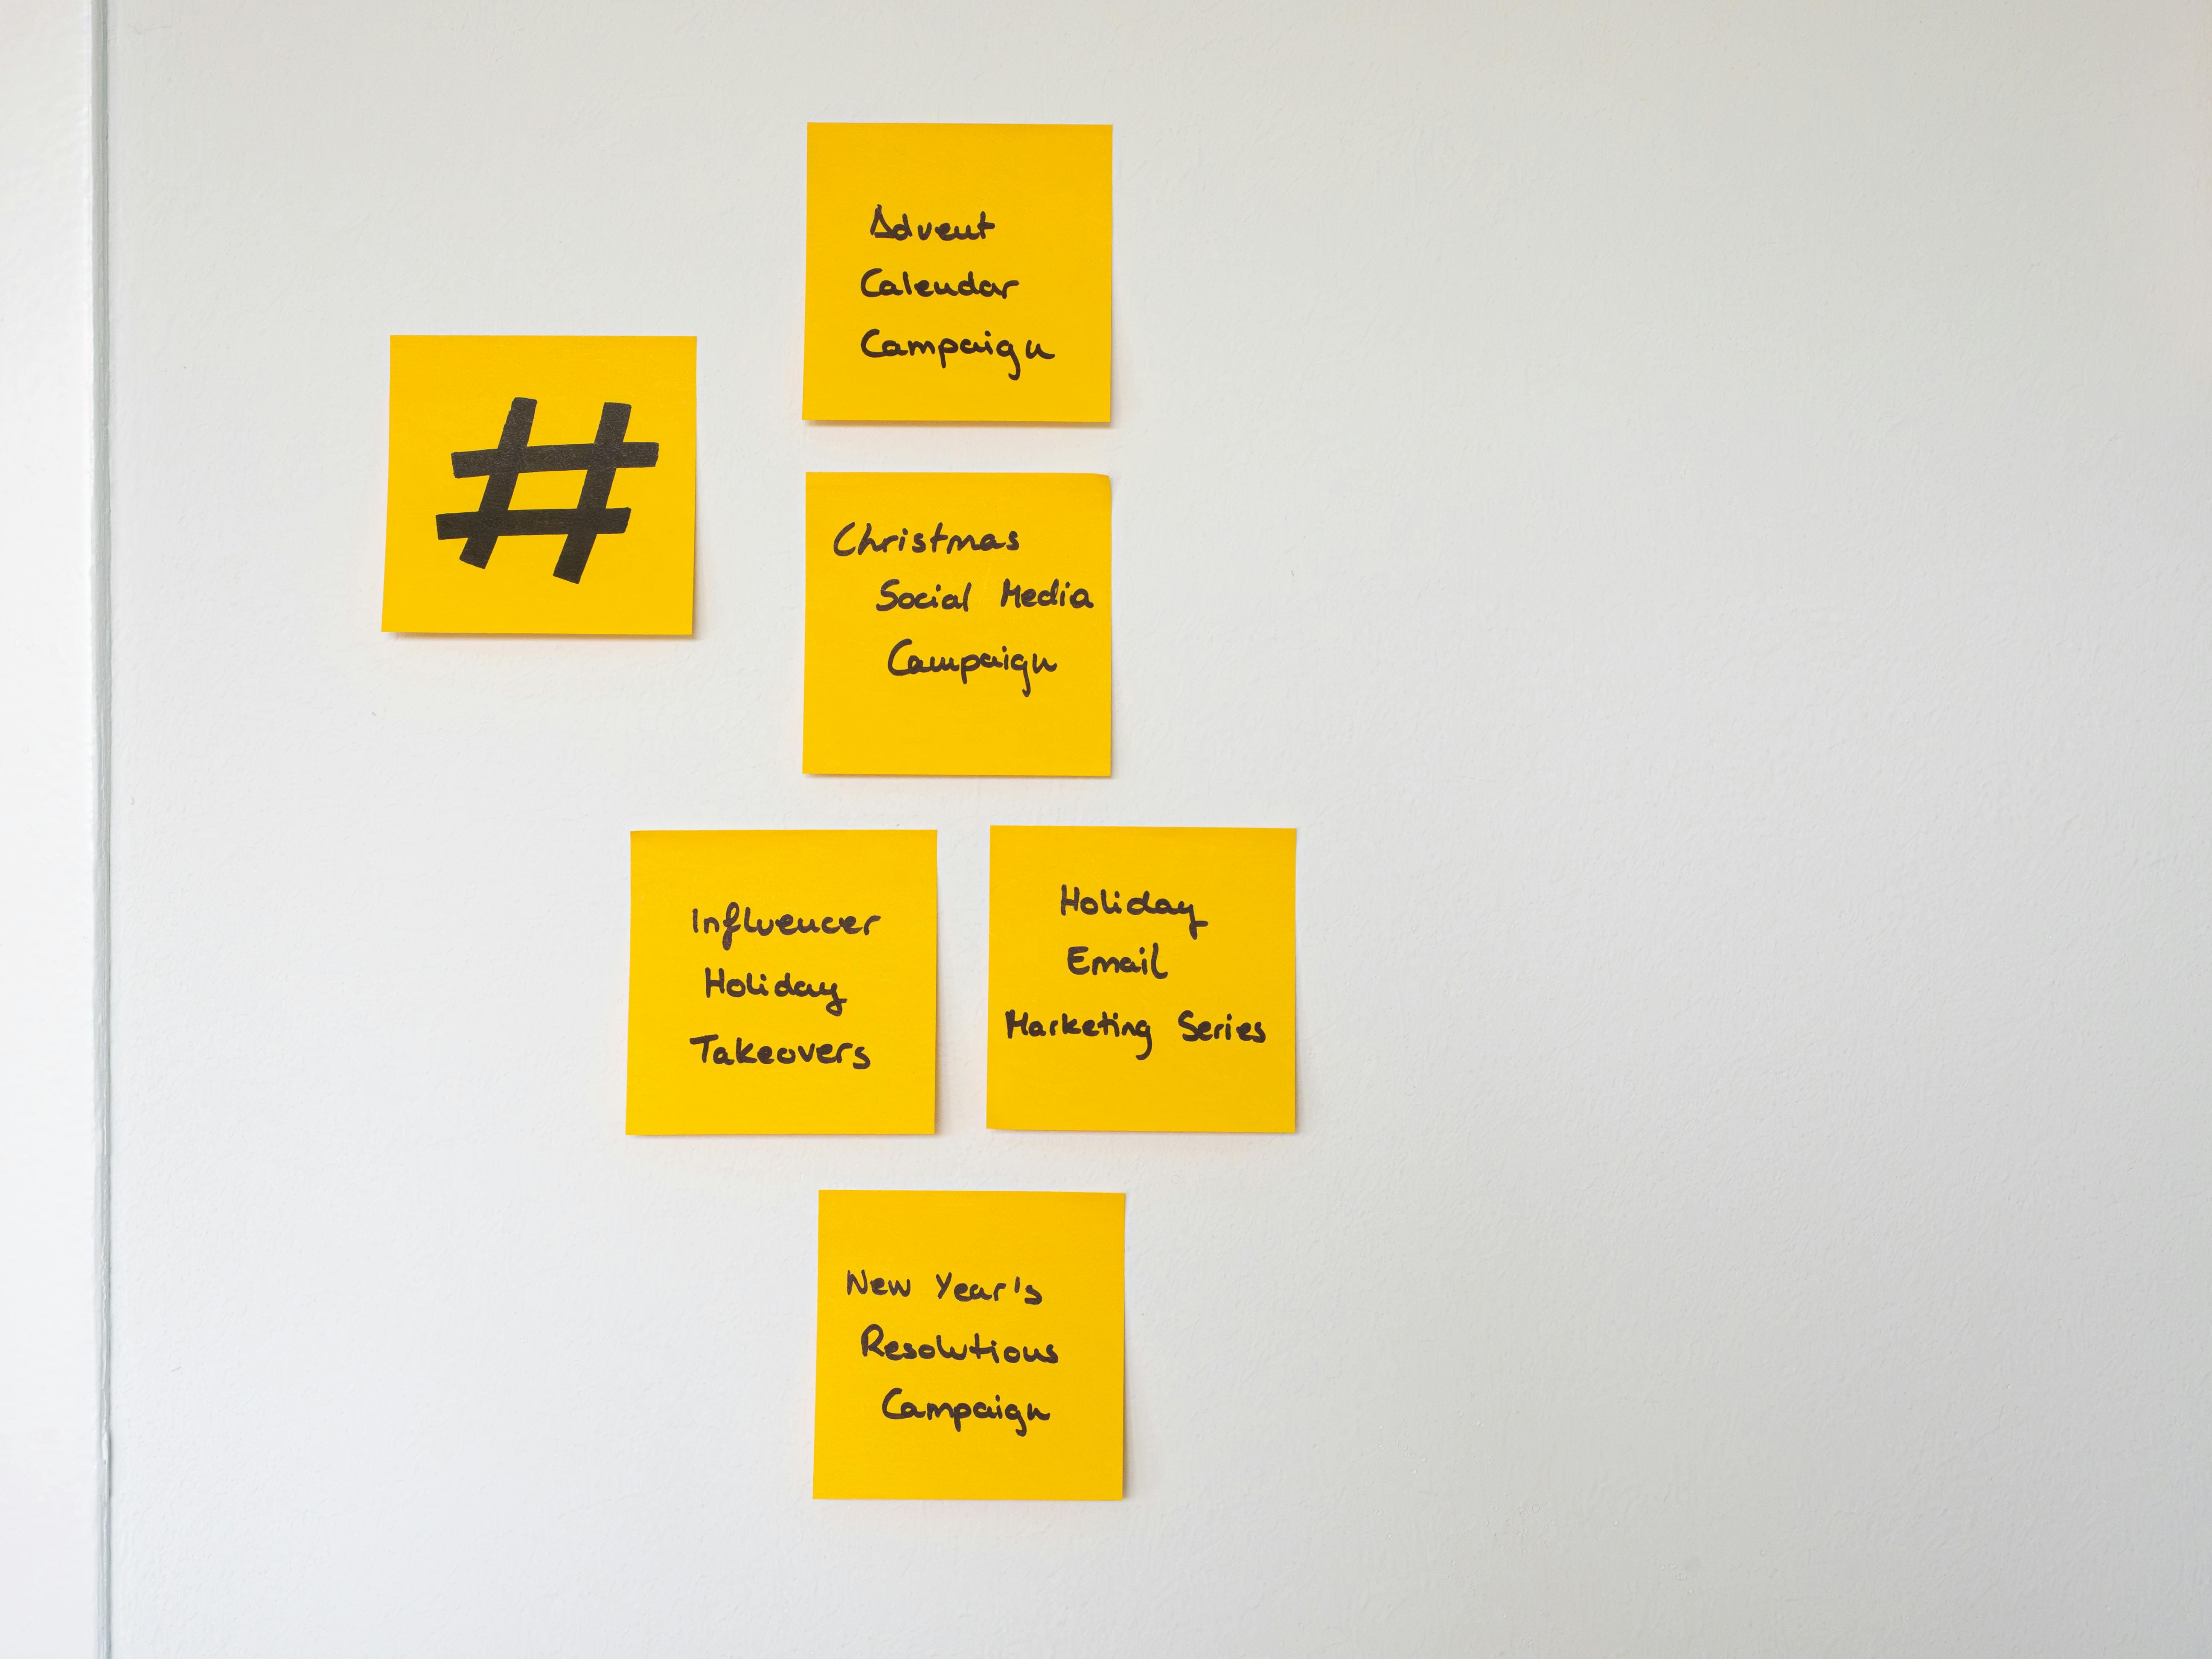 #
Advent
Calendar
Campaign
Christmas
Social Media
Campaign
Influencer
Holiday
Takeovers
Holiday
Email
Marketing Series
New Year's
Resolutions
Campaign